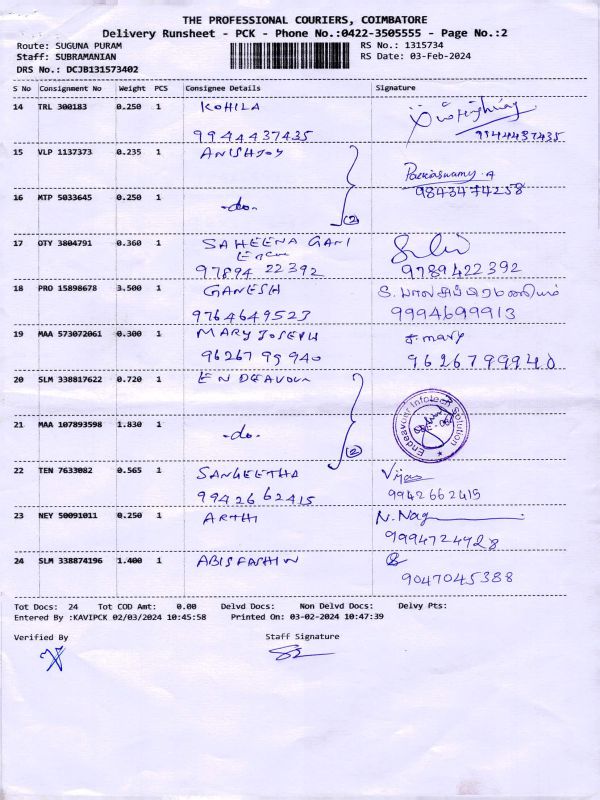 THE PROFESSIONAL COURIERS, COIMBATORE
Delivery Runsheet - PCK - Phone No.:0422-3505555 - Page No.:2
Route: SUGUNA PURAM RS No.: 1315734
Staff: SUBRAMANIAN RS Date: 03-Feb-2024
DRS No.: DCJB131573402
S No Consignment No Weight PCS Consignee Details Signature
14 TRL 300183 0.250 1 KOHILA
9944437435 9944437435
15 VLP 1137373 0.235 1 ANISHJOY
Periaswamy. A
16 MTP 5033645 0.250 1 -do- (2) 9843474258
17 OTY 3804791 0.360 1 SAHEENA GANI
97894 22392 9789422392
18 PRO 15898678 3.500 1 GANESH S. பாலசுப்ரமணியம்
9764649523 9994699913
19 MAA 573072061 0.300 1 MARY JOSEPH J. mary
96267 99940 9626799940
20 SLM 338817622 0.720 1 ENDEAVOUR
Endeavour Infotech Solution
21 MAA 107893598 1.830 1 -do- (2)
22 TEN 7633082 0.565 1 SANGEETHA Vijay
99426 62415 9942662415
23 NEY 50091011 0.250 1 ARTHI N. Nag
9994724928
24 SLM 338874196 1.400 1 ABISFASHIN
9047045388
Tot Docs: 24 Tot COD Amt: 0.00 Delvd Docs: Non Delvd Docs: Delvy Pts:
Entered By :KAVIPCK 02/03/2024 10:45:58 Printed On: 03-02-2024 10:47:39
Verified By Staff Signature